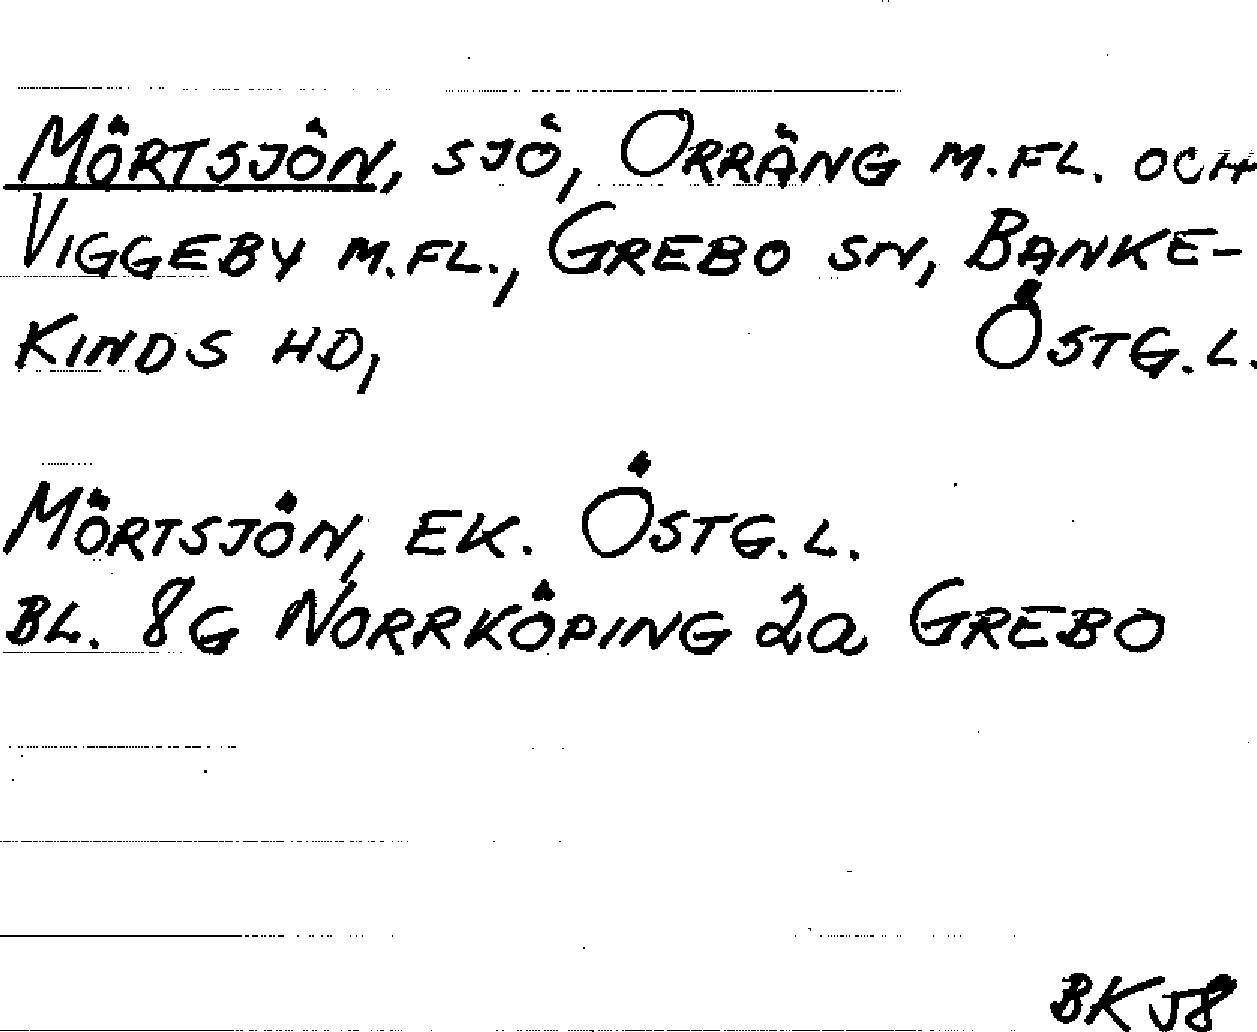 MÖRTSJÖN, SJÖ, ORRÄNG M.FL. OCH
VIGGEBY M.FL., GREBO SN, BANKE-
KINDS HD, ÖSTG.L.
MÖRTSJÖN, EK. ÖSTG.L.
BL. 8G NORRKÖPING 2a GREBO
BK J8